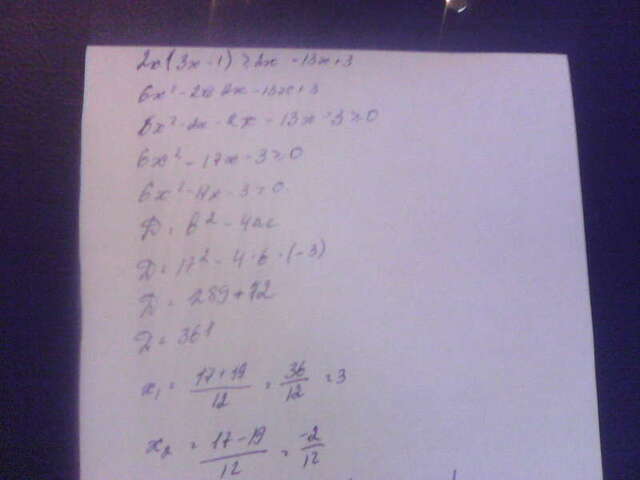 2x(3x-1) ≥ 2x - 13x+3
6x² - 2x ≥ 2x - 13x+3
6x² - 2x - 2x - 13x - 3 ≥ 0
6x² - 17x - 3 ≥ 0
6x² - 17x - 3 = 0
D = b² - 4ac
D = 17² - 4·6·(-3)
D = 289+72
D = 361
x₁ = 17+19/12 = 36/12 = 3
x₂ = 17-19/12 = -2/12